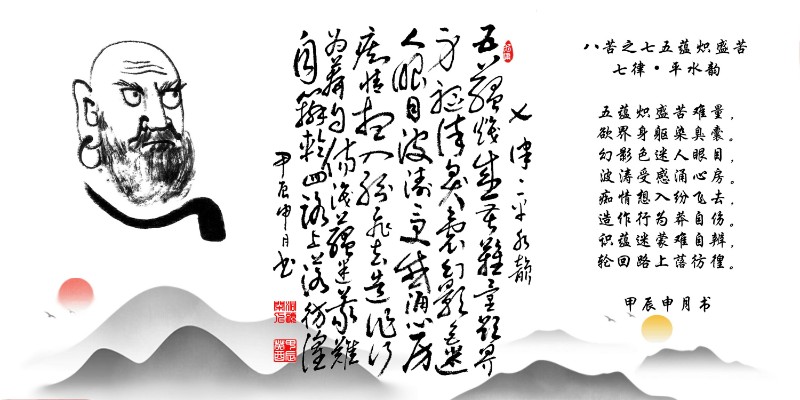 八苦之七五蕴炽盛苦
七律·平水韵
五蕴炽盛苦难量,
欲界身躯染臭囊。
幻影色迷人眼目,
波涛受惑涌心房。
痴情想入纷飞去,
造作行为莽自伤。
识蕴迷蒙难自辨,
轮回路上落彷徨。
甲辰申月书
七律·平水韵
五蘊熾盛苦難量欲界
身軀染臭囊幻影色迷
人眼目波濤受惑涌心房
痴情想入紛飛去造作行
為莽自傷識蘊迷蒙難
自辨輪回路上落彷徨
甲辰申月书